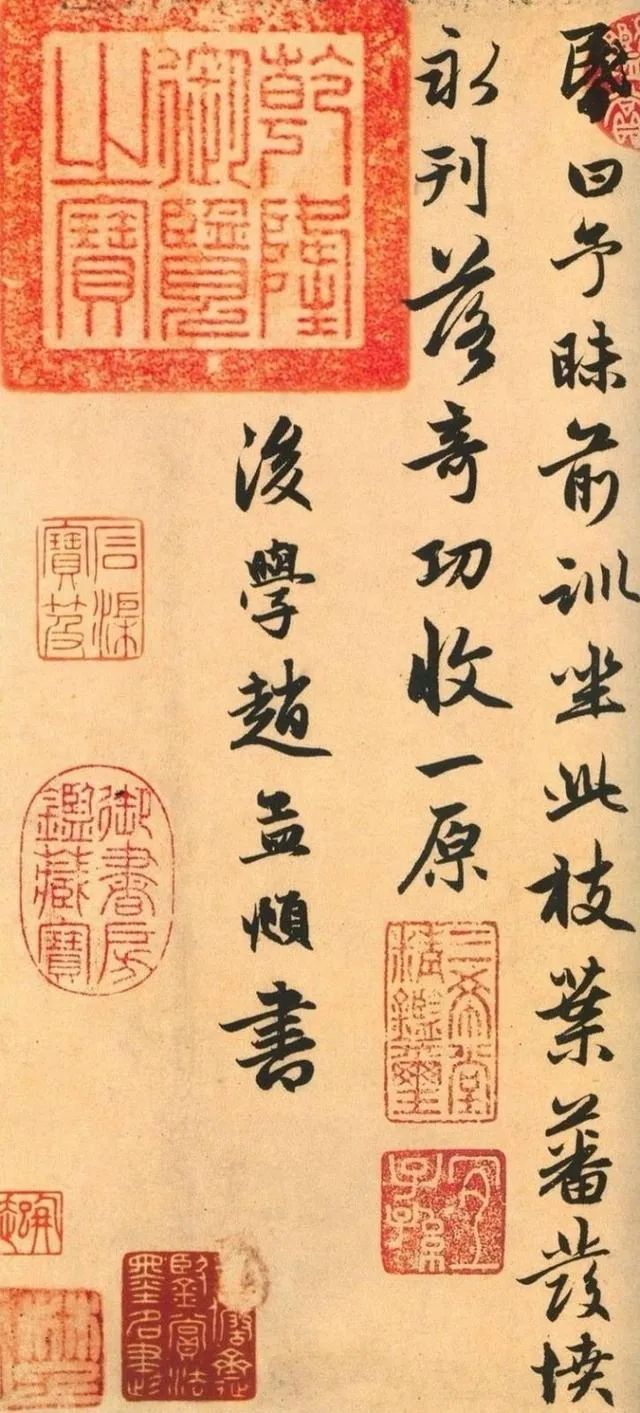 昬曰予昧前訓坐此枝葉蕃發憤
永刊落奇功收一原
三希堂精鑑璽
宜子孫
乾隆御覽之寶
後學趙孟頫書
石渠寶笈
御書房鑑藏寶